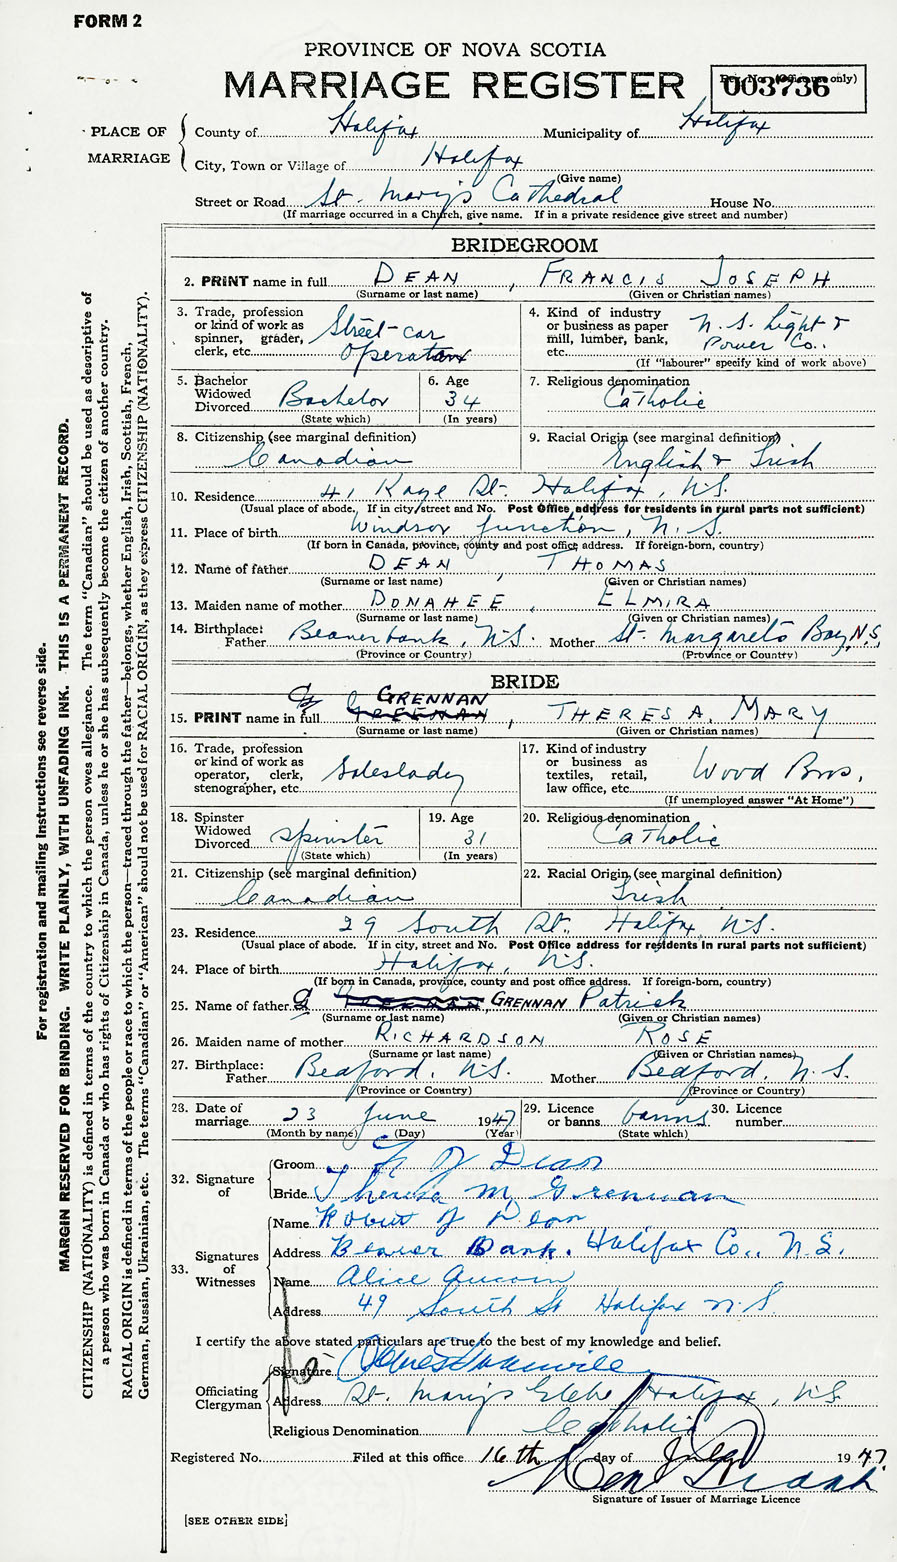 FORM 2
PROVINCE OF NOVA SCOTIA
MARRIAGE REGISTER
Reg. No. (Office use only)
003736
PLACE OF MARRIAGE
County of Halifax Municipality of Halifax
City, Town or Village of Halifax
(Give name)
Street or Road St. Mary's Cathedral House No.
(If marriage occurred in a Church, give name. If in a private residence give street and number)
BRIDEGROOM
2. PRINT name in full DEAN, FRANCIS JOSEPH
(Surname or last name) (Given or Christian names)
3. Trade, profession or kind of work as spinner, grader, clerk, etc. Street-car Operator
4. Kind of industry or business as paper mill, lumber, bank, etc. N.S. Light & Power Co..
(If "labourer" specify kind of work above)
5. Bachelor Widowed Divorced Bachelor
(State which)
6. Age 34
(In years)
7. Religious denomination Catholic
8. Citizenship (see marginal definition) Canadian
9. Racial Origin (see marginal definition) English & Irish
10. Residence 41 Kaye St. Halifax, N.S.
(Usual place of abode. If in city street and No. Post Office address for residents in rural parts not sufficient)
11. Place of birth Windsor Junction, N.S.
(If born in Canada, province, county and post office address. If foreign-born, country)
12. Name of father DEAN, THOMAS
(Surname or last name) (Given or Christian names)
13. Maiden name of mother DONAHEE, ELMIRA
(Surname or last name) (Given or Christian names)
14. Birthplace: Father Beaverbank, N.S. Mother St. Margarets Bay, N.S.
(Province or Country) (Province or Country)
BRIDE
GRENNAN
15. PRINT name in full GREENAN, THERESA MARY
(Surname or last name) (Given or Christian names)
16. Trade, profession or kind of work as operator, clerk, stenographer, etc. Saleslady
17. Kind of industry or business as textiles, retail, law office, etc. Wood Bros.
(If unemployed answer "At Home")
18. Spinster Widowed Divorced Spinster
(State which)
19. Age 31
(In years)
20. Religious denomination Catholic
21. Citizenship (see marginal definition) Canadian
22. Racial Origin (see marginal definition) Irish
23. Residence 29 South St., Halifax, N.S.
(Usual place of abode. If in city, street and No. Post Office address for residents in rural parts not sufficient)
24. Place of birth Halifax, N.S.
(If born in Canada, province, county and post office address. If foreign-born, country)
25. Name of father GRENNAN Patrick
(Surname or last name) (Given or Christian names)
26. Maiden name of mother RICHARDSON ROSE
(Surname or last name) (Given or Christian names)
27. Birthplace: Father Bedford, N.S. Mother Bedford, N.S.
(Province or Country) (Province or Country)
28. Date of marriage 23 June 1947
(Month by name) (Day) (Year)
29. Licence or banns banns
(State which)
30. Licence number
32. Signature of
Groom F J Dean
Bride Theresa M. Grennan
33. Signatures of Witnesses
Name Robert J Dean
Address Beaver Bank. Halifax Co., N.S.
Name Alice Aucoin
Address 49 South St Halifax N.S.
I certify the above stated particulars are true to the best of my knowledge and belief.
Officiating Clergyman
Signature
Address St. Mary's Glebe, Halifax, N.S.
Religious Denomination Catholic
Registered No. Filed at this office 16th day of July 1947.
Signature of Issuer of Marriage Licence
[SEE OTHER SIDE]
For registration and mailing instructions see reverse side.
MARGIN RESERVED FOR BINDING. WRITE PLAINLY, WITH UNFADING INK. THIS IS A PERMANENT RECORD.
CITIZENSHIP (NATIONALITY) is defined in terms of the country to which the person owes allegiance. The term "Canadian" should be used as descriptive of
a person who was born in Canada or who has rights of Citizenship in Canada, unless he or she has subsequently become the citizen of another country.
RACIAL ORIGIN is defined in terms of the people or race to which the person—traced through the father—belongs, whether English, Irish, Scottish, French,
German, Russian, Ukrainian, etc. The terms "Canadian" or "American" should not be used for RACIAL ORIGIN, as they express CITIZENSHIP (NATIONALITY).